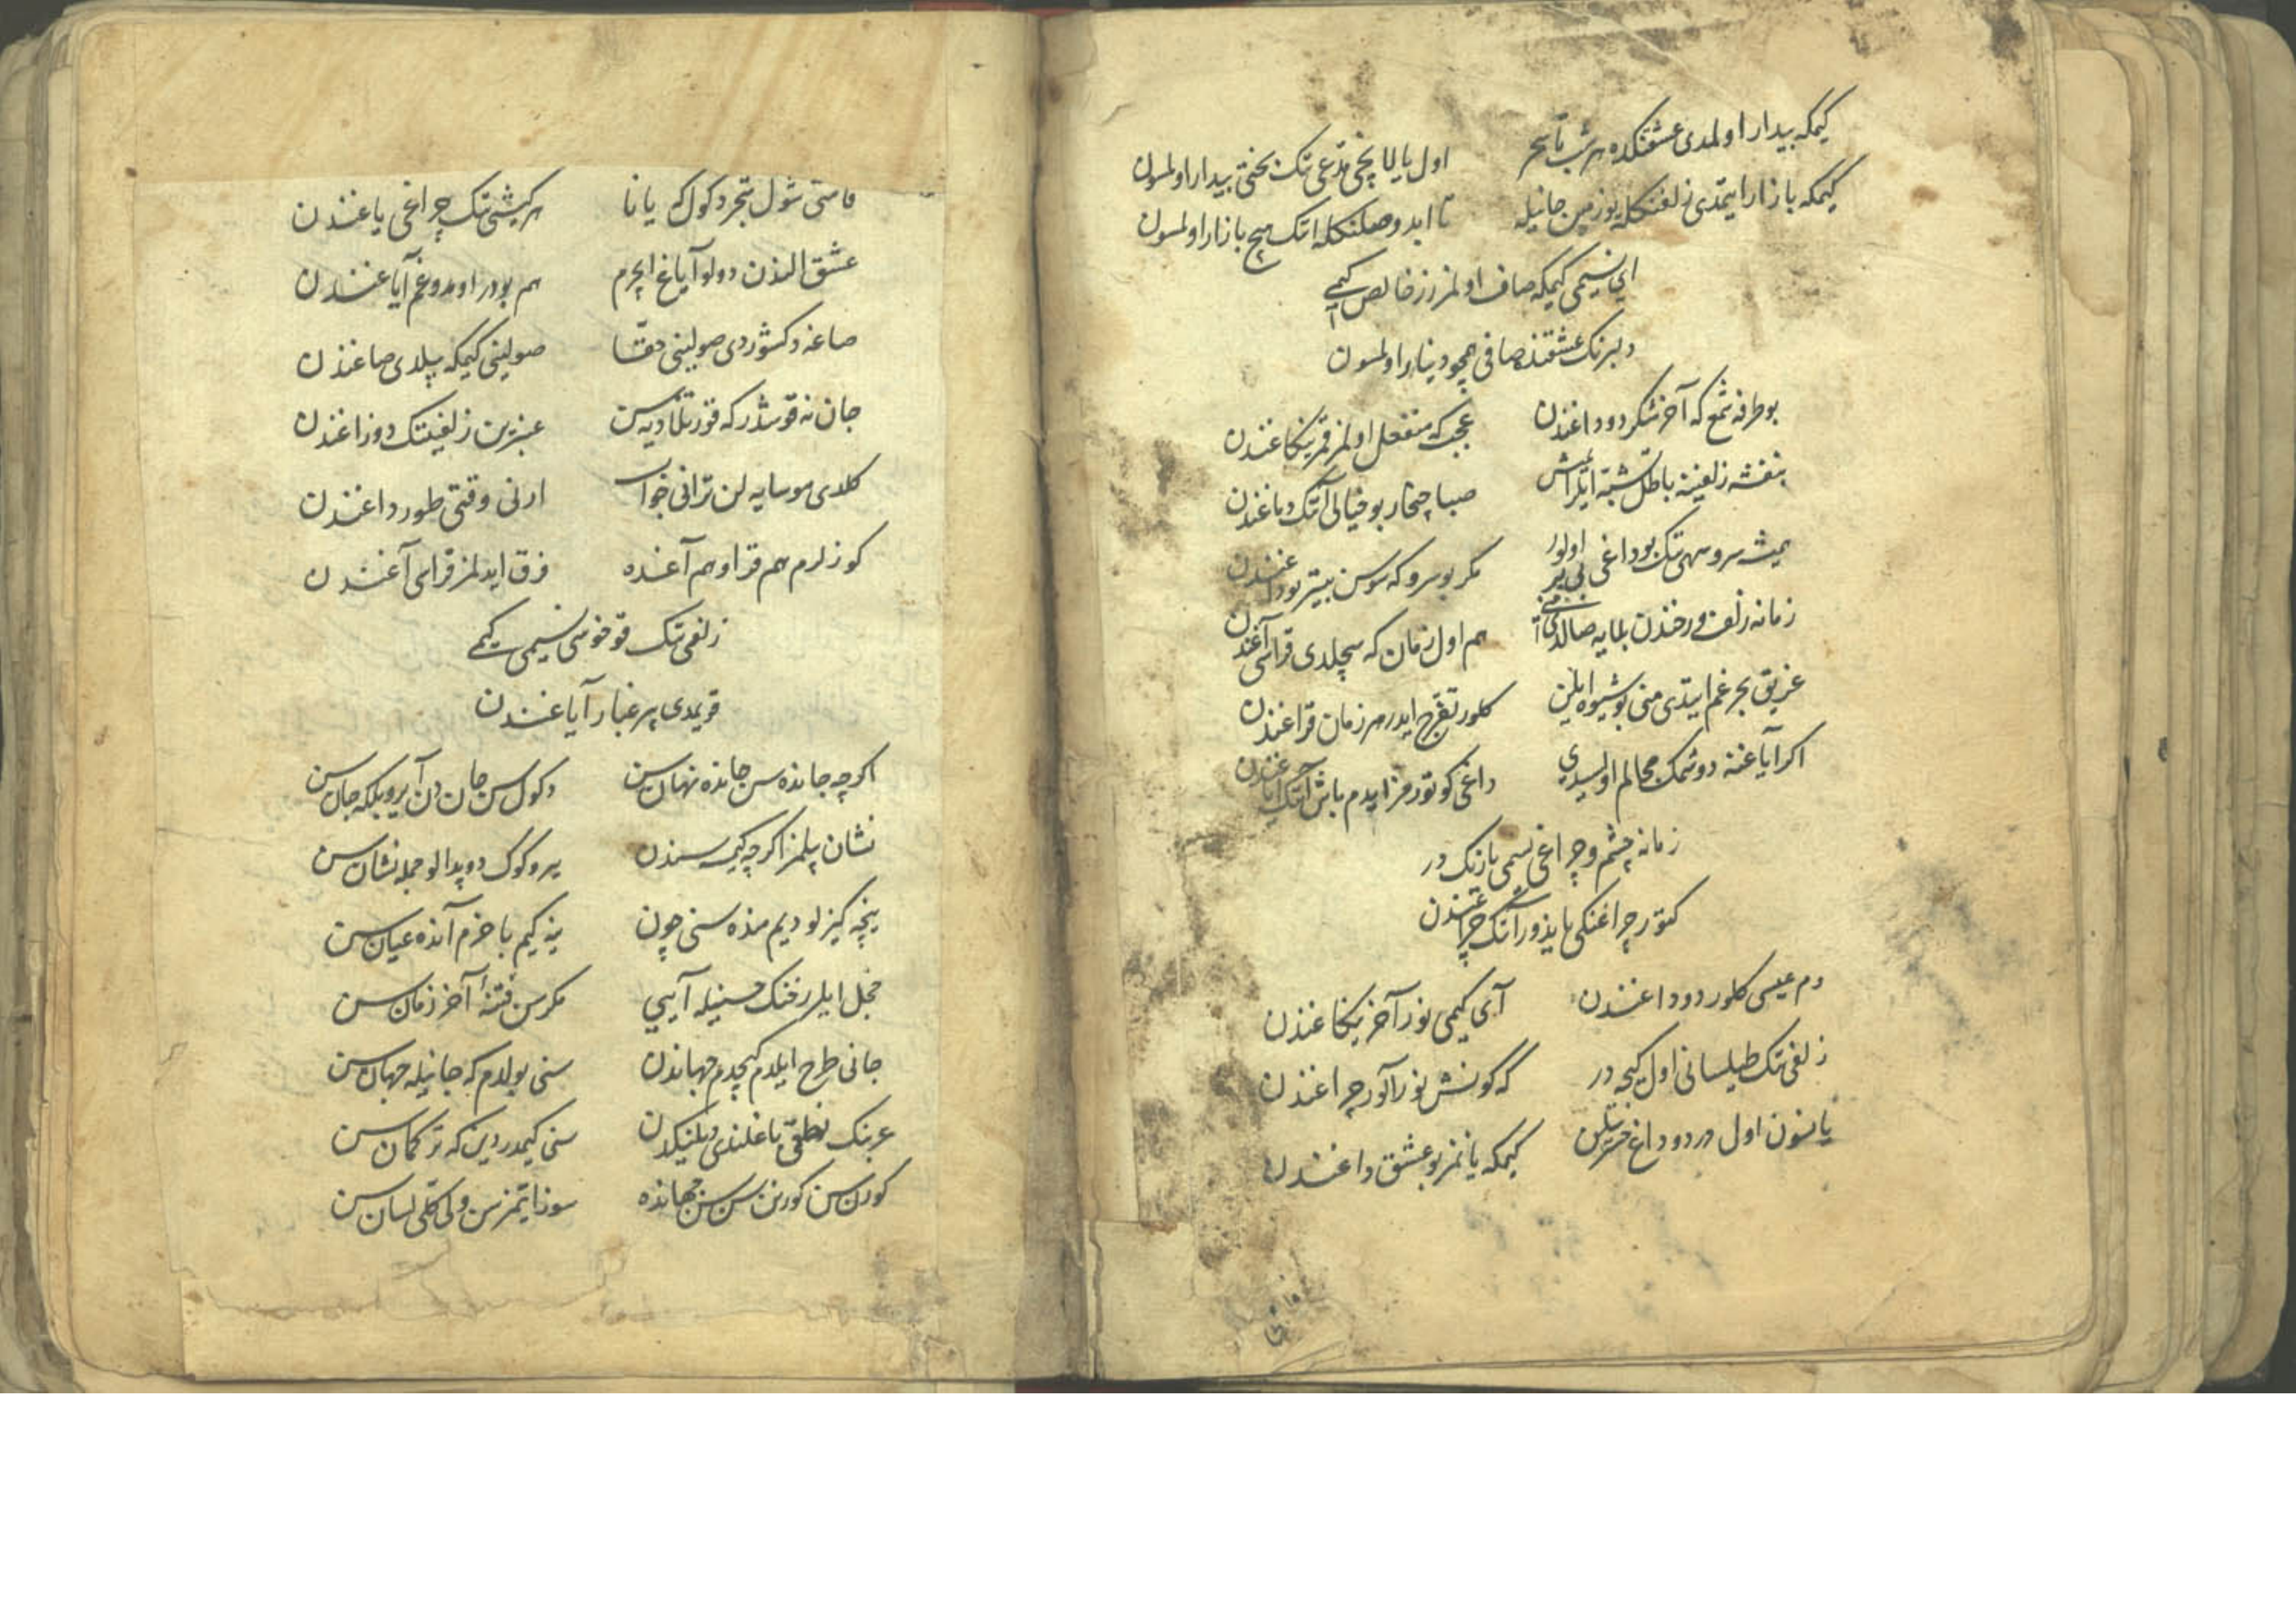 كیمكه بیدار اولمدی عشقنكده هر شب تا سحر
اول یالانچی مدعی نك بختی بیدار اولمسون
كیمكه بازار ایتمدی زلفنكله یوز مین جانیله
تا ابد وصلنكله انك هیچ بازار اولمسون
ای نسیمی كیمكه صاف اولمز زر خالص كیمی
دلبرنك عشقنده صافی همچو دینار اولمسون
بو طرفه شمع كه آخر شكر دوداغندن
عجب كه منفعل اولمز قمر یكاغندن
بنفشه زلفینه باطل شبه ایلرایمش
صبا چخار بو خیالی آنك دماغندن
همیشه سرو سهی نك بوداغی اولور
مكر بو سرو كه سوسن بیتر بوداغندن
زمانه زلف و رخندن بلایه صالدی منی
هم اول زمان كه سچلدی قراسی آغندن
غریق بحر غم ایتدی منی بو شیوه ایلن
كلور تفرج ایدر هر زمان قراغندن
اكر آیاغنه دوشمك مجالم اولسیدی
داغی كوتورمز ایدم باش آنك ایاغندن
زمانه چشم و چراغی نسمی یازنك در
كتور چراغنكی یاندور آنك چراغندن
دم عیسی كلور دوداغندن
آی كیمی نور آخر یكاغندن
زلفی نك طیلسانی اول كیجه در
كه كونش نور آلور چراغندن
یانسون اول دردو داغ حسرتیلن
كیمكه یانمز بو عشق داغندن
قامتی شول شجر دكول كه یانا
هر كیشی نك چراغی یاغندن
عشق الندن دولو آیاغ ایچرم
هم بودر اومدوغم آیاغندن
صاغه دكشوردی صولینی حقا
صولینی كیمكه بیلدی صاغندن
جان نه قوشدر كه قورتلا دیه سن
عنبرین زلفینك دوزاغندن
كلدی موسایه لن ترانی جواب
ارنی وقتی طور داغندن
كوزلرم هم قرا و هم آغنده
فرق ایدلمز قراسی آغندن
زلفی نك قوخوسی نسیمی كیمی
قویمدی بیر غبار آیاغندن
اكرچه جانده سن جانده نهان سن
دكول سن جان دن آیرو بلكه جان سن
نشان بیلمز اكرچه كیمسه سندن
یر و كوك دوپدالو جمله نشان سن
نیچه كیزلو دیم منده سنی چون
نیه كیم باخرم آنده عیان سن
خجل ایلر رخنك حسنیله آیی
مكر سن فتنۀ آخر زمان سن
جانی طرح ایلدم كیچدم جهاندن
سنی بولدم كه جانیله جهان سن
عربنك نطقی باغلندی دیلنكدن
سنی كیمدر دین كه تركمان سن
كورن سن كورنن سن سن جهانده
سوز ایتمز سن ولی كلی لسان سن